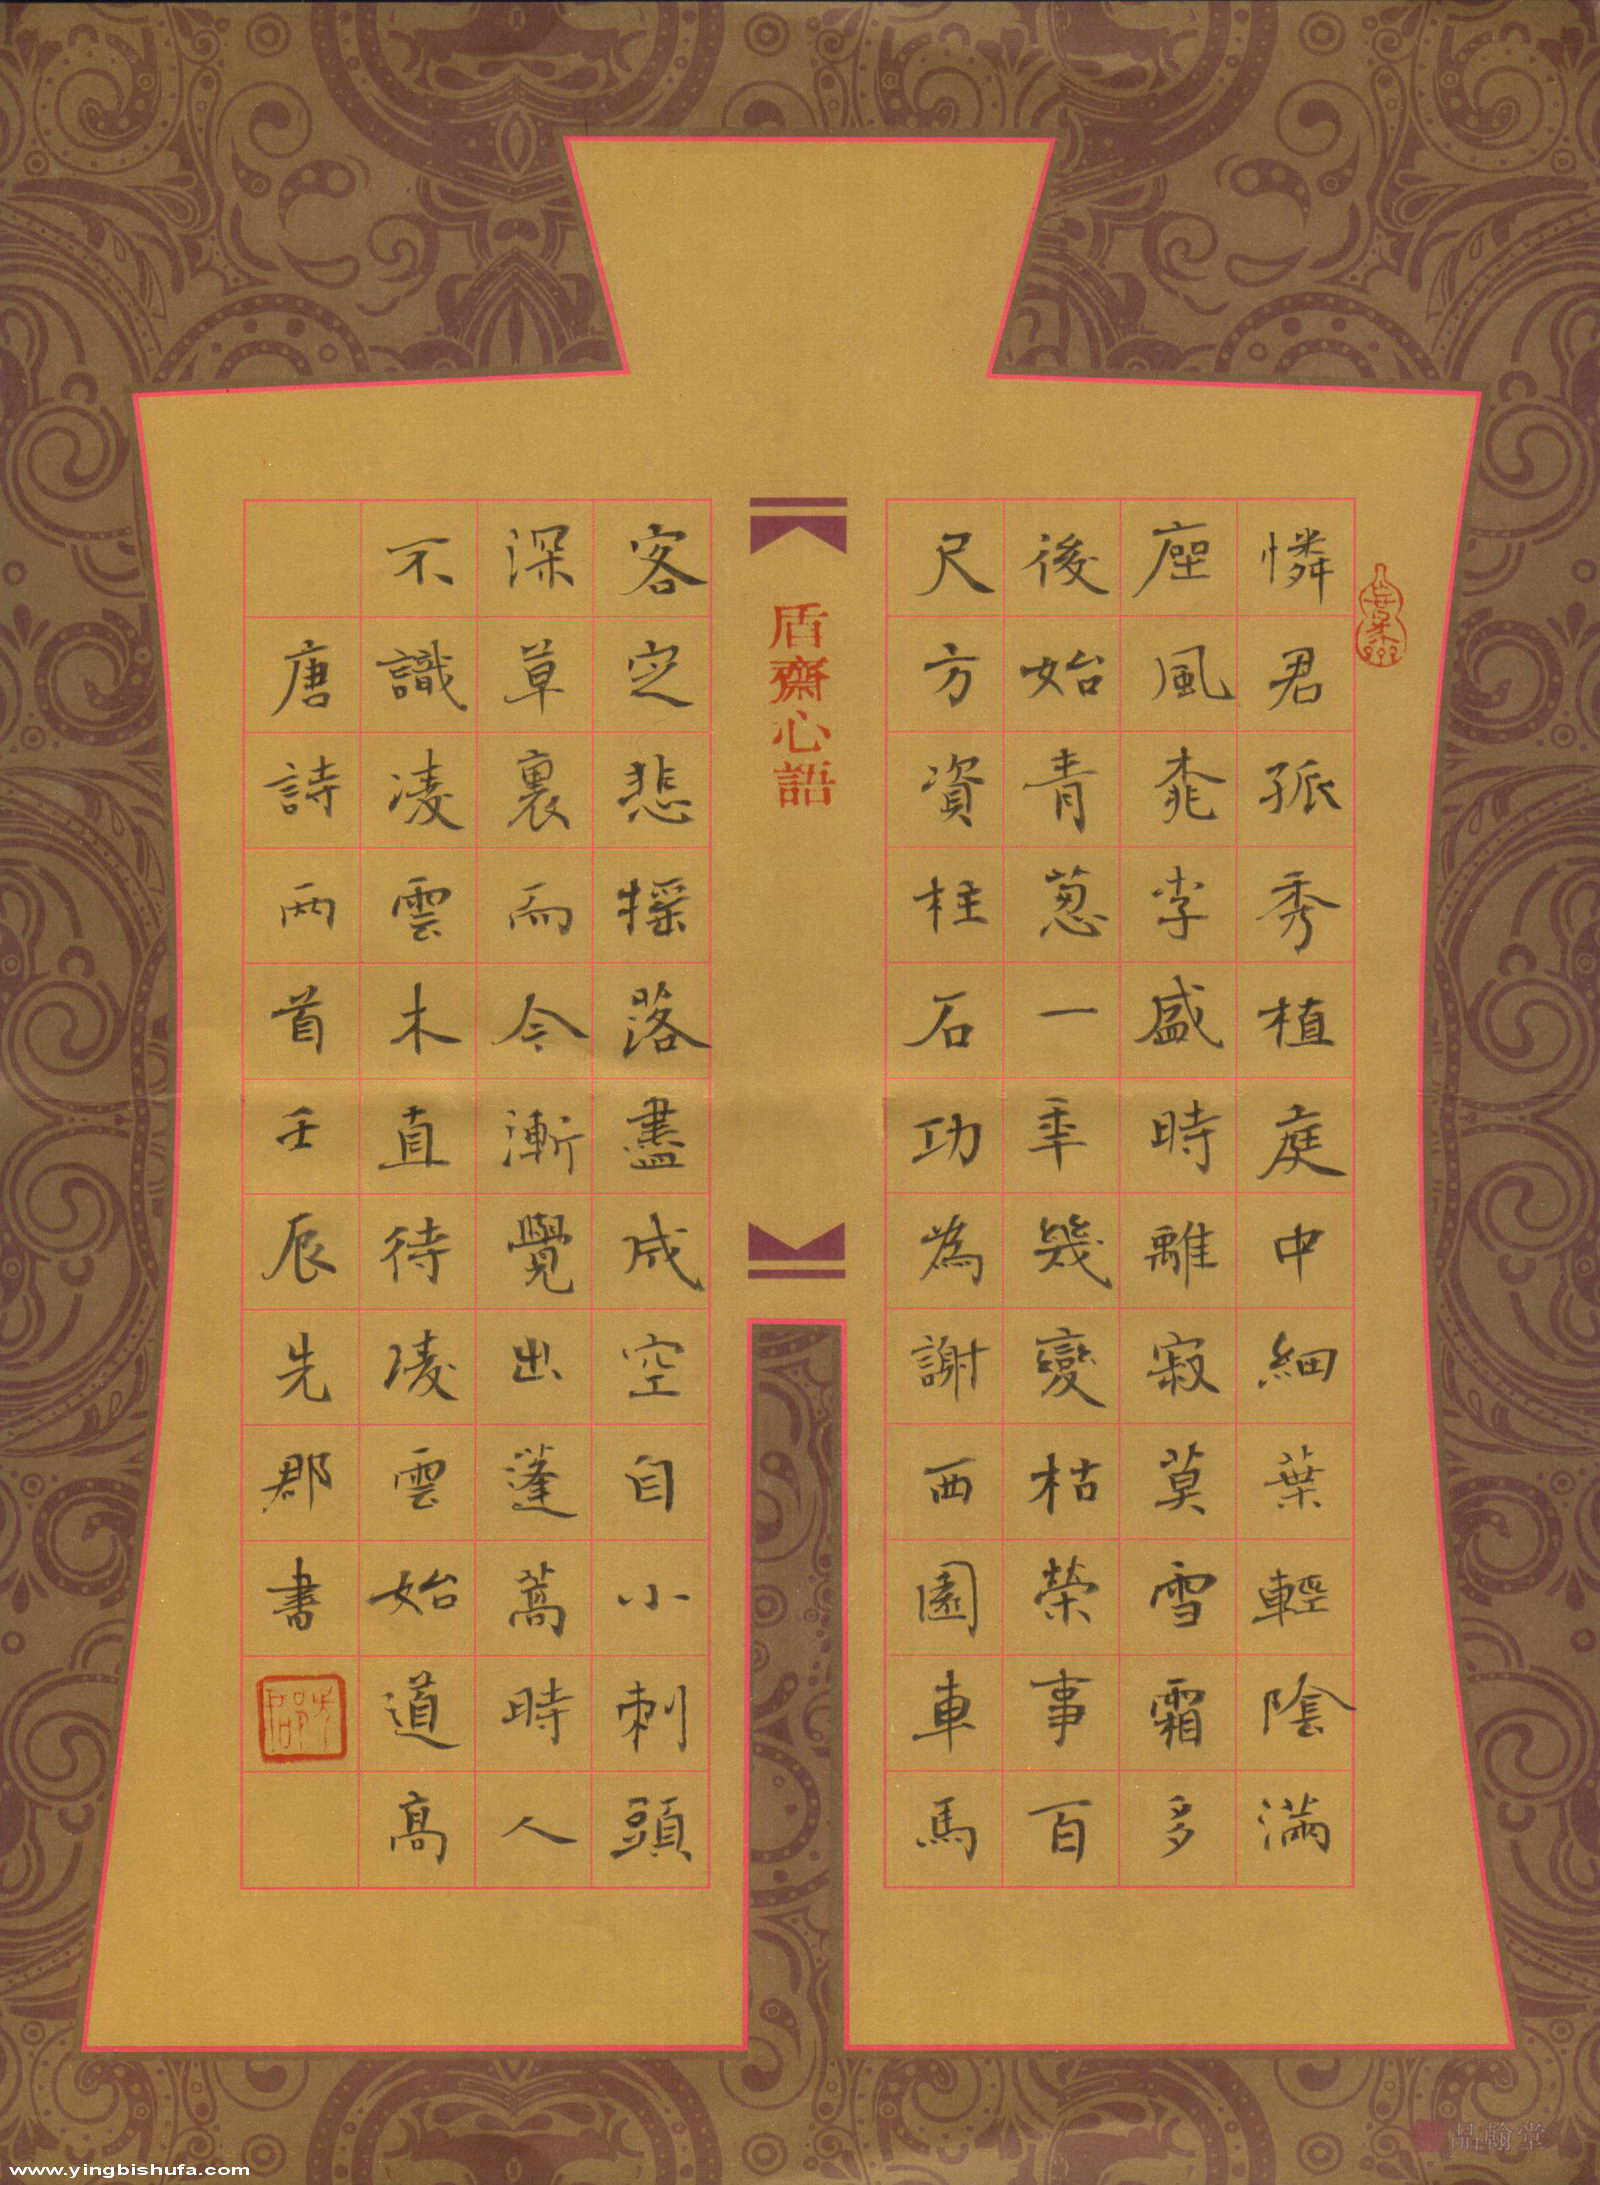 憐君孤秀植庭中細葉輕陰滿
座風桃李盛時離寂莫雪霜多
後始青葱一年幾變枯榮事百
尺方資柱石功為謝西園車馬
盾齋心語
客定悲摇落盡成空自小刺頭
深草裏而今漸覺出蓬蒿時人
不識凌雲木直待凌雲始道高
唐詩兩首壬辰先郡書
品翰堂
www.yingbishufa.com